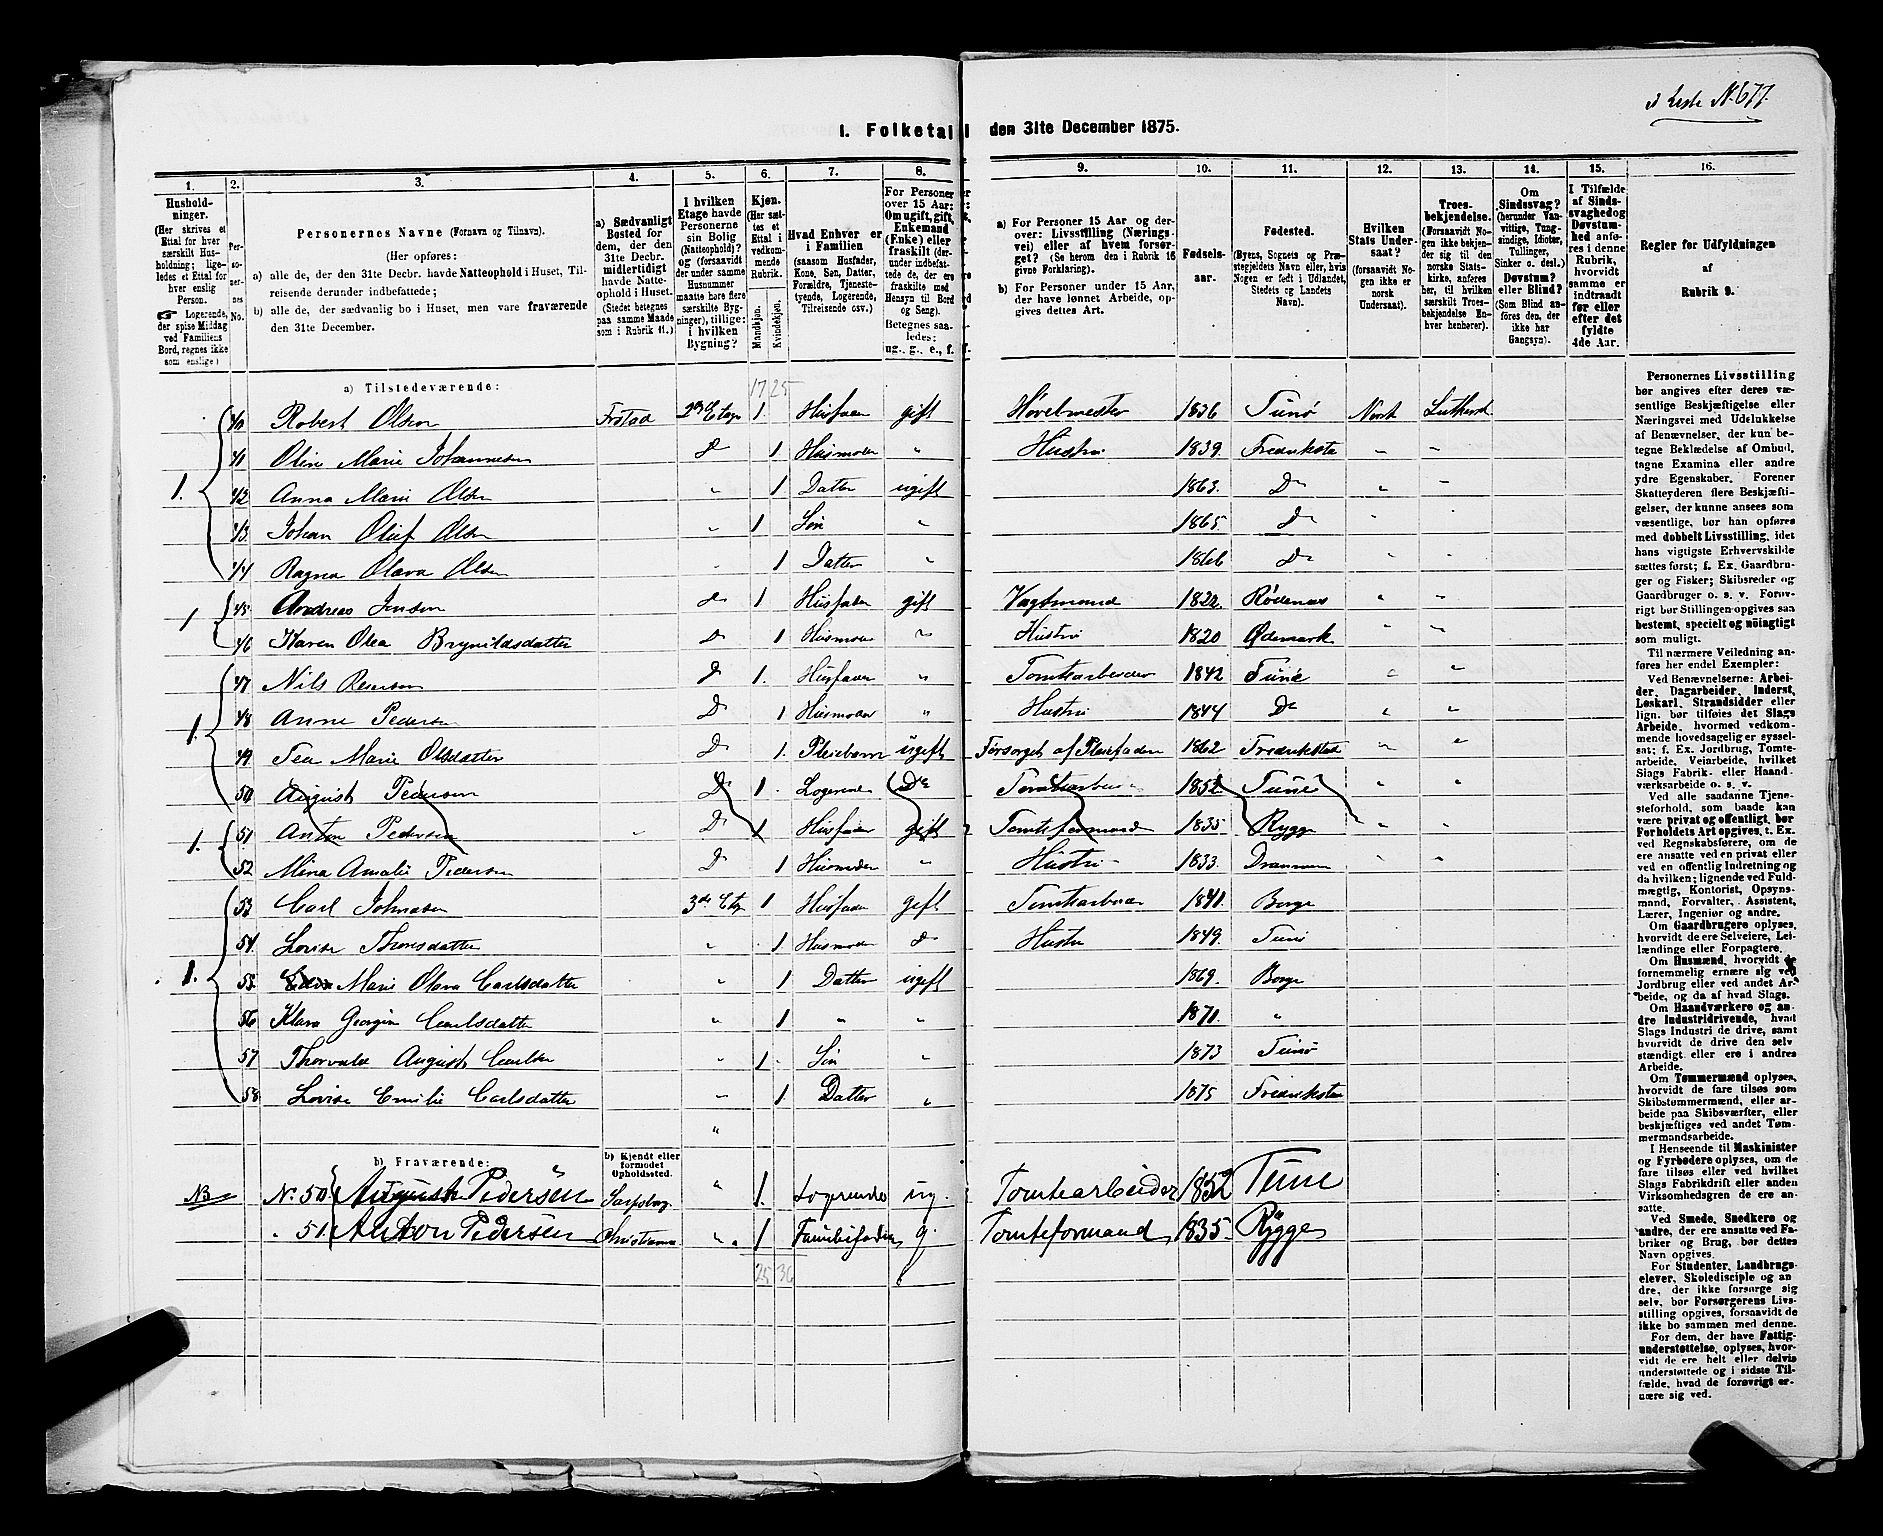 3 Liste N. 677.
1. Folketal den 31te December 1875.
1. 2. 3. 4. 5. 6. 7. 8. 9. 10. 11. 12. 13. 14. 15. 16.
Husholdninger.
(Her skrives et Ettal for hver særskilt Husholdning; ligeledes et Ettal for hver enslig Person.
☞ Logerende, der spise Middag ved Familiens Bord, regnes ikke som enslige.)
Personernes No.
Personernes Navne (Fornavn og Tilnavn).
(Her opføres:
a) alle de, der den 31te Decbr. havde Natteophold i Huset, Tilreisende derunder indbefattede;
b) alle de, der sædvanlig bo i Huset, men vare fraværende den 31te December.
a) Sædvanligt Bosted for dem, der den 31te Decbr. midlertidigt havde Natteophold i Huset. (Stedet betegnes paa samme Maade som i Rubrik 11.)
I hvilken Etage havde Personerne sin Bolig (Natteophold)? og (forsaavidt der under samme Husnummer maatte høre flere særskilte Bygninger), tillige: i hvilken Bygning?
Kjøn. (Her sættes et Ettal i vedkommende Rubrik. Mandkjøn. Kvindekjøn.
Hvad Enhver er i Familien (saasom Husfader, Kone, Søn, Datter, Forældre, Tjenestetyende, Logerende, Tilreisende osv.)
For Personer over 15 Aar: Om ugift, gift, Enkemand (Enke) eller fraskilt (derunder indbefattede de, der ere fraskilte med Hensyn til Bord og Seng). Betegnes saaledes: ug., g., e., f.
a) For Personer 15 Aar og derover: Livsstilling (Næringsvei) eller af hvem forsørget? (Se herom den i Rubrik 16 givne Forklaring).
b) For Personer under 15 Aar, der have lønnet Arbeide, opgives dettes Art.
Fødselsaar.
Fødested. (Byens, Sognets og Præstegjeldets Navn eller, hvis Nogen er født i Udlandet, Stedets og Landets Navn).
Hvilken Stats Undersaat? (forsaavidt Nogen ikke er norsk Undersaat).
Troesbekjendelse. (Forsaavidt Nogen ikke bekjender sig til den norske Statskirke, anføres her, til hvilken særskilt Troesbekjendelse Enhver henhører).
Om Sindssvag? (herunder Vanvittige, Tungsindige, Idioter, Tullinger, Sinker o. desl.) Døvstum? eller Blind? (Som Blind anføres den, der ikke har Gangsyn).
I Tilfælde af Sindssvaghed og Døvstumhed anføres i denne Rubrik, hvorvidt samme er indtraadt før eller efter det fyldte 4de Aar.
Regler for Udfyldningen af Rubrik 9.
a) Tilstedeværende: 17 25
40 Robert Olsen Frstad 2den Etage 1. Husfader gift Høvelmester 1836 Tunø Norsk Luthersk
41 Oline Marie Johannesen Do 1 Husmoder " Hustru 1839. Fredriksta " "
1. 42 Anna Marie Olsen " 1 Datter ugift 1863. Do " "
43. Johan Oluf Olsen " 1 Søn " 1865. Do " "
44 Ragna Olava Olsen " 1 Datter " 1866 Do
1 45 Andreas Jensen Do 1 Husfader gift Vagtmand 1822. Rødenæs " "
46 Karen Olea Brynildsdatter Do 1 Husmoder " Hustru 1820 Ødemark " "
47 Nils Do 1. Husfader " Tomtearbeider 1842 Tune " "
1. 48 Anne Pedersen Do 1 Husmoder " Hustru 1844 Do " "
49 Tea Marie Olsdatter Do 1. Pleiebarn ugift Forsørget af Pleiefaderen 1862 Fredrikstad " "
50 August Pedersen Do 1. Logerende Do Tomtearbeider 1852 Tune " "
1. 51 Anton Pedersen " Do 1 Husfader gift Tomteformand 1835 Rygge " "
52 Mina Amalie Pedersen Do 1 Husmoder " Hustru 1833. Drammen " "
53 Carl Johnsen 3de Etg 1 Husfader gift Tomtearbeider 1841. Borge
54. Lovise Thorsdatter " 1 Husmoder Do Hustru 1849. Tune
1. 55. Marie Olava Carlsdatter " 1 Datter ugift 1869. Borge
56 Klara Georgine Carlsdatter " 1 " " 1871. "
57 Thorvald August Carlsen " 1. Søn " 1873 Tunø
58 Lovise Emilie Carlsdatter " 1 Datter " 1875 Fredriksta
"
b) Fraværende: b) Kjendt eller formodet Opholdssted.
NB No. 50 August Pedersen Sarpsborg " 1. Logerende ug. Tomtearbeider 1852 Tune
" 51 Anton Pedersen Christiania " 1 Familiefader g. Tomteformand 1835 Rygge
25 36
Personernes Livsstilling bør angives efter deres væsentlige Beskjæftigelse eller Næringsvei med Udelukkelse af Benævnelser, der kun betegne Beklædelse af Ombud, tagne Examina eller andre ydre Egenskaber. Forener Skatteyderen flere Beskjæftigelser, der kunne ansees som væsentlige, bør han opføres med dobbelt Livsstilling, idet hans vigtigste Erhvervskilde sættes først; f. Ex. Gaardbruger og Fisker; Skibsreder og Gaardbruger o. s. v. Forøvrigt bør Stillingen opgives saa bestemt, specielt og nøiagtigt som muligt.
Til nærmere Veiledning anføres her endel Exempler:
Ved Benævnelserne: Arbeider, Dagarbeider, Inderst, Løskarl, Strandsidder eller lign. bør tilføies det Slags Arbeide, hvormed vedkommende hovedsagelig er sysselsat; f. Ex. Jordbrug, Tomtearbeide, Veiarbeide, hvilket Slags Fabrik- eller Haandværksarbeide o. s. v.
Ved alle saadanne Tjenesteforhold, som baade kan være privat og offentligt, bør Forholdets Art opgives, t. Ex. ved Regnskabsførere, om de ere ansatte ved en privat eller ved en offentlig Indretning og da hvilken; lignende ved Fuldmægtig, Kontorist, Opsynsmand, Forvalter, Assistent, Lærer, Ingeniør og andre.
Om Gaardbrugere oplyses, hvorvidt de ere Selveiere, Leilændinge eller Forpagtere.
Om Husmænd, hvorvidt de fornemmelig ernære sig ved Jordbrug eller ved andet Arbeide, og da af hvad Slags.
Om Haandværkere og andre Industridrivende, hvad Slags Industri de drive, samt hvorvidt de drive den selvstændigt eller ere i andres Arbeide.
Om Tømmermænd oplyses, hvorvidt de fare tilsøs som Skibstømmermænd, eller arbeide paa Skibsværfter, eller beskjæftiges ved andet Tømmermandsarbeide.
I Henseende til Maskinister og Fyrbødere oplyses, om de fare tilsøs eller ved hvilket Slags Fabrikdrift eller anden Virksomhedsgren de ere ansatte.
Ved Smede, Snedkere og andre, der ere ansatte ved Fabriker og Brug, bør dettes Navn opgives.
For Studenter, Landbrugselever, Skoledisciple og andre, der ikke forsørge sig selv, bør Forsørgerens Livsstilling opgives, forsaavidt de ikke bo sammen med denne.
For dem, der have Fattigunderstøttelse, oplyses, hvorvidt de ere helt eller delvis understøttede og i sidste Tilfælde, hvad de forøvrigt ernære sig ved.